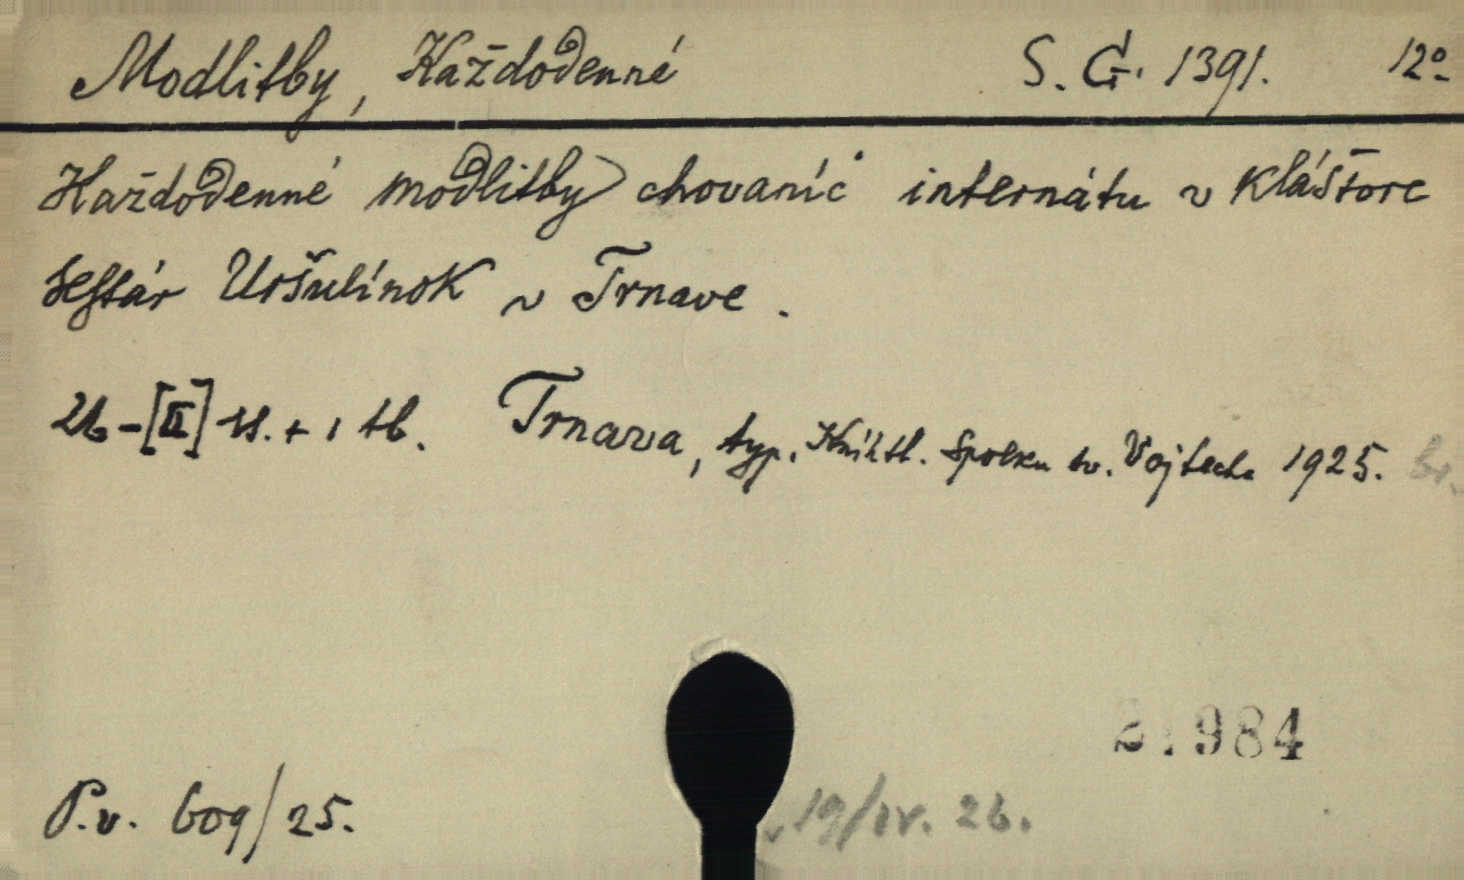 Modlitby, Každodenné S. G. 1391. 12°
Každodenné modlitby chovaníc internátu v kláštore
sestár Uršulínok v Trnave.
26-[II] s. + 1 tb. Trnava, typ. Kníhtl. Spolku sv. Vojtecha 1925. br.
984
P.v. 609/25.
19/IV. 26.